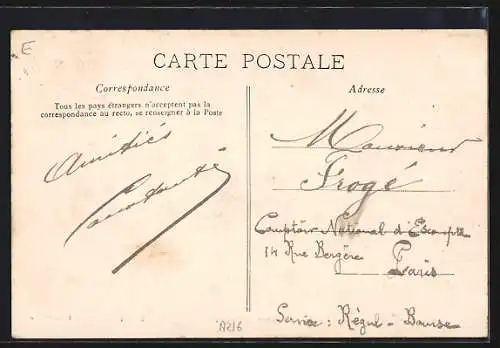 E
CARTE POSTALE
Correspondance
Tous les pays étrangers n'acceptent pas la
correspondance au recto, se renseigner à la Poste
Amitiés
Constanté
Adresse
Monsieur
Frogé
Comptoir National d'Escompte
14 Rue Bergère
Paris
Service : Régul - Bourse
A216